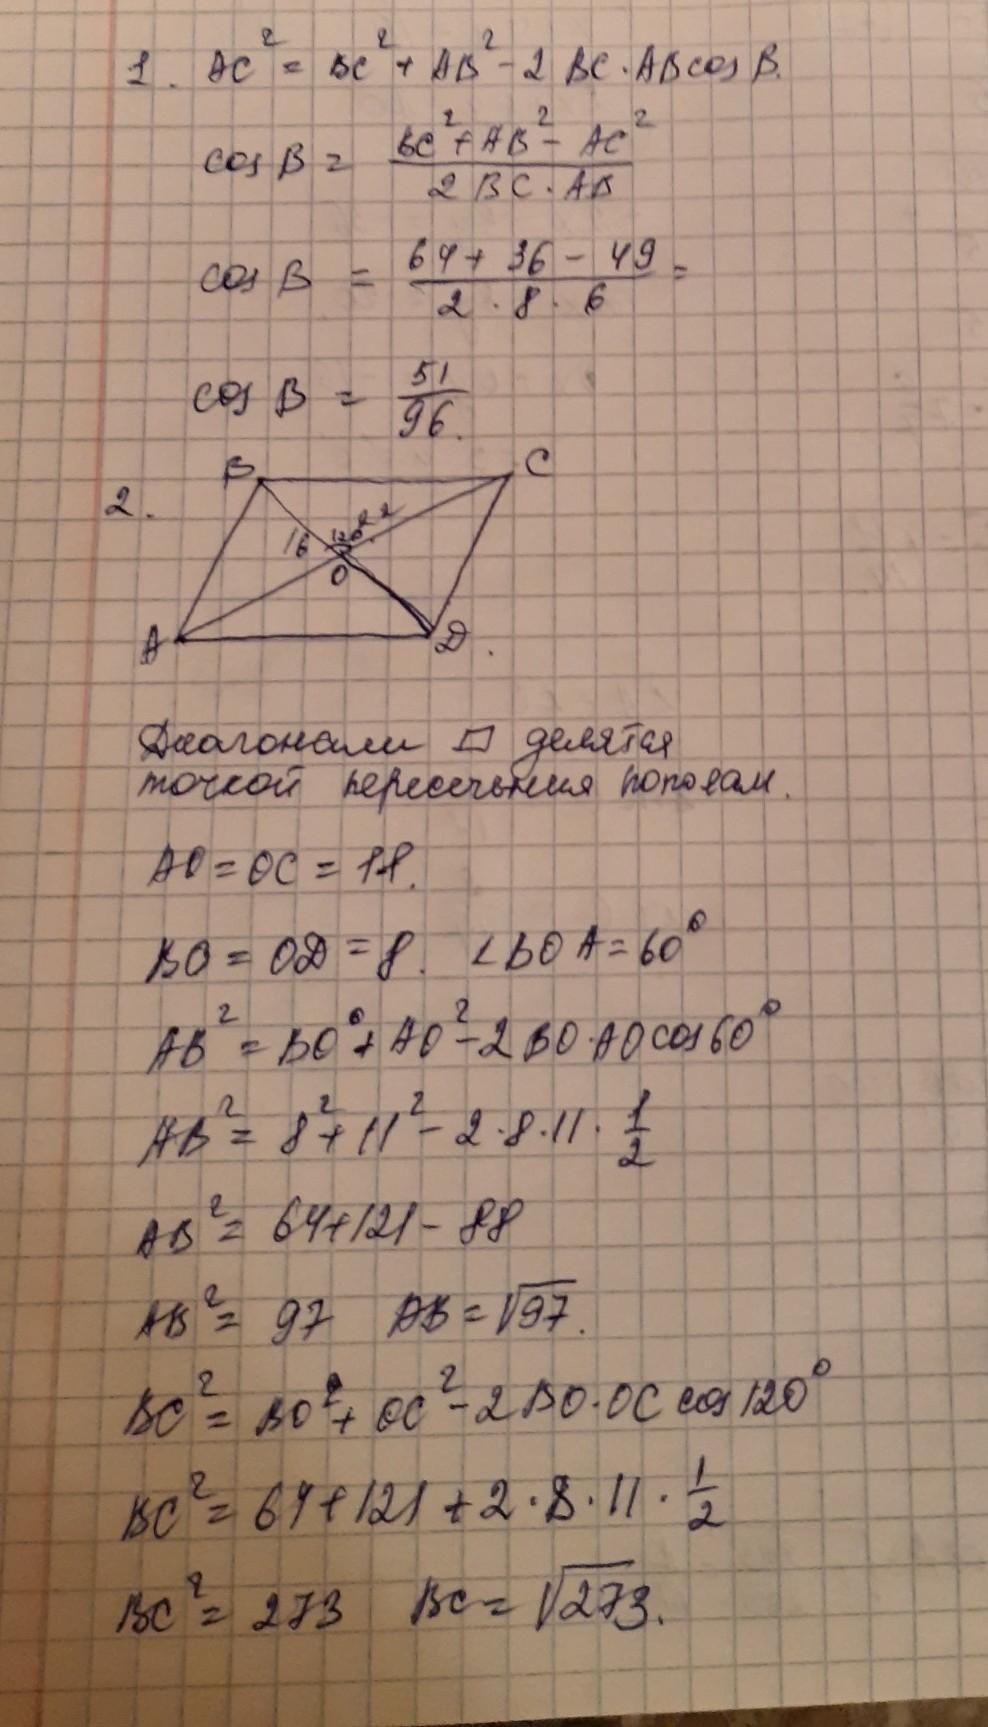 1. AC² = BC² + AB² - 2 BC · AB cos B.
cos B = (BC² + AB² - AC²) / (2 BC · AB)
cos B = (64 + 36 - 49) / (2 · 8 · 6) =
cos B = 51/96.
2.
B C
16 120° 22
O
A D.
Диагонали ▱ делятся
точкой пересечения пополам.
AO = OC = 11.
BO = OD = 8. ∠BOA = 60°
AB² = BO² + AO² - 2 BO · AO cos 60°
AB² = 8² + 11² - 2 · 8 · 11 · 1/2
AB² = 64 + 121 - 88
AB² = 97 AB = √97.
BC² = BO² + OC² - 2 BO · OC cos 120°
BC² = 64 + 121 + 2 · 8 · 11 · 1/2
BC² = 273 BC = √273.